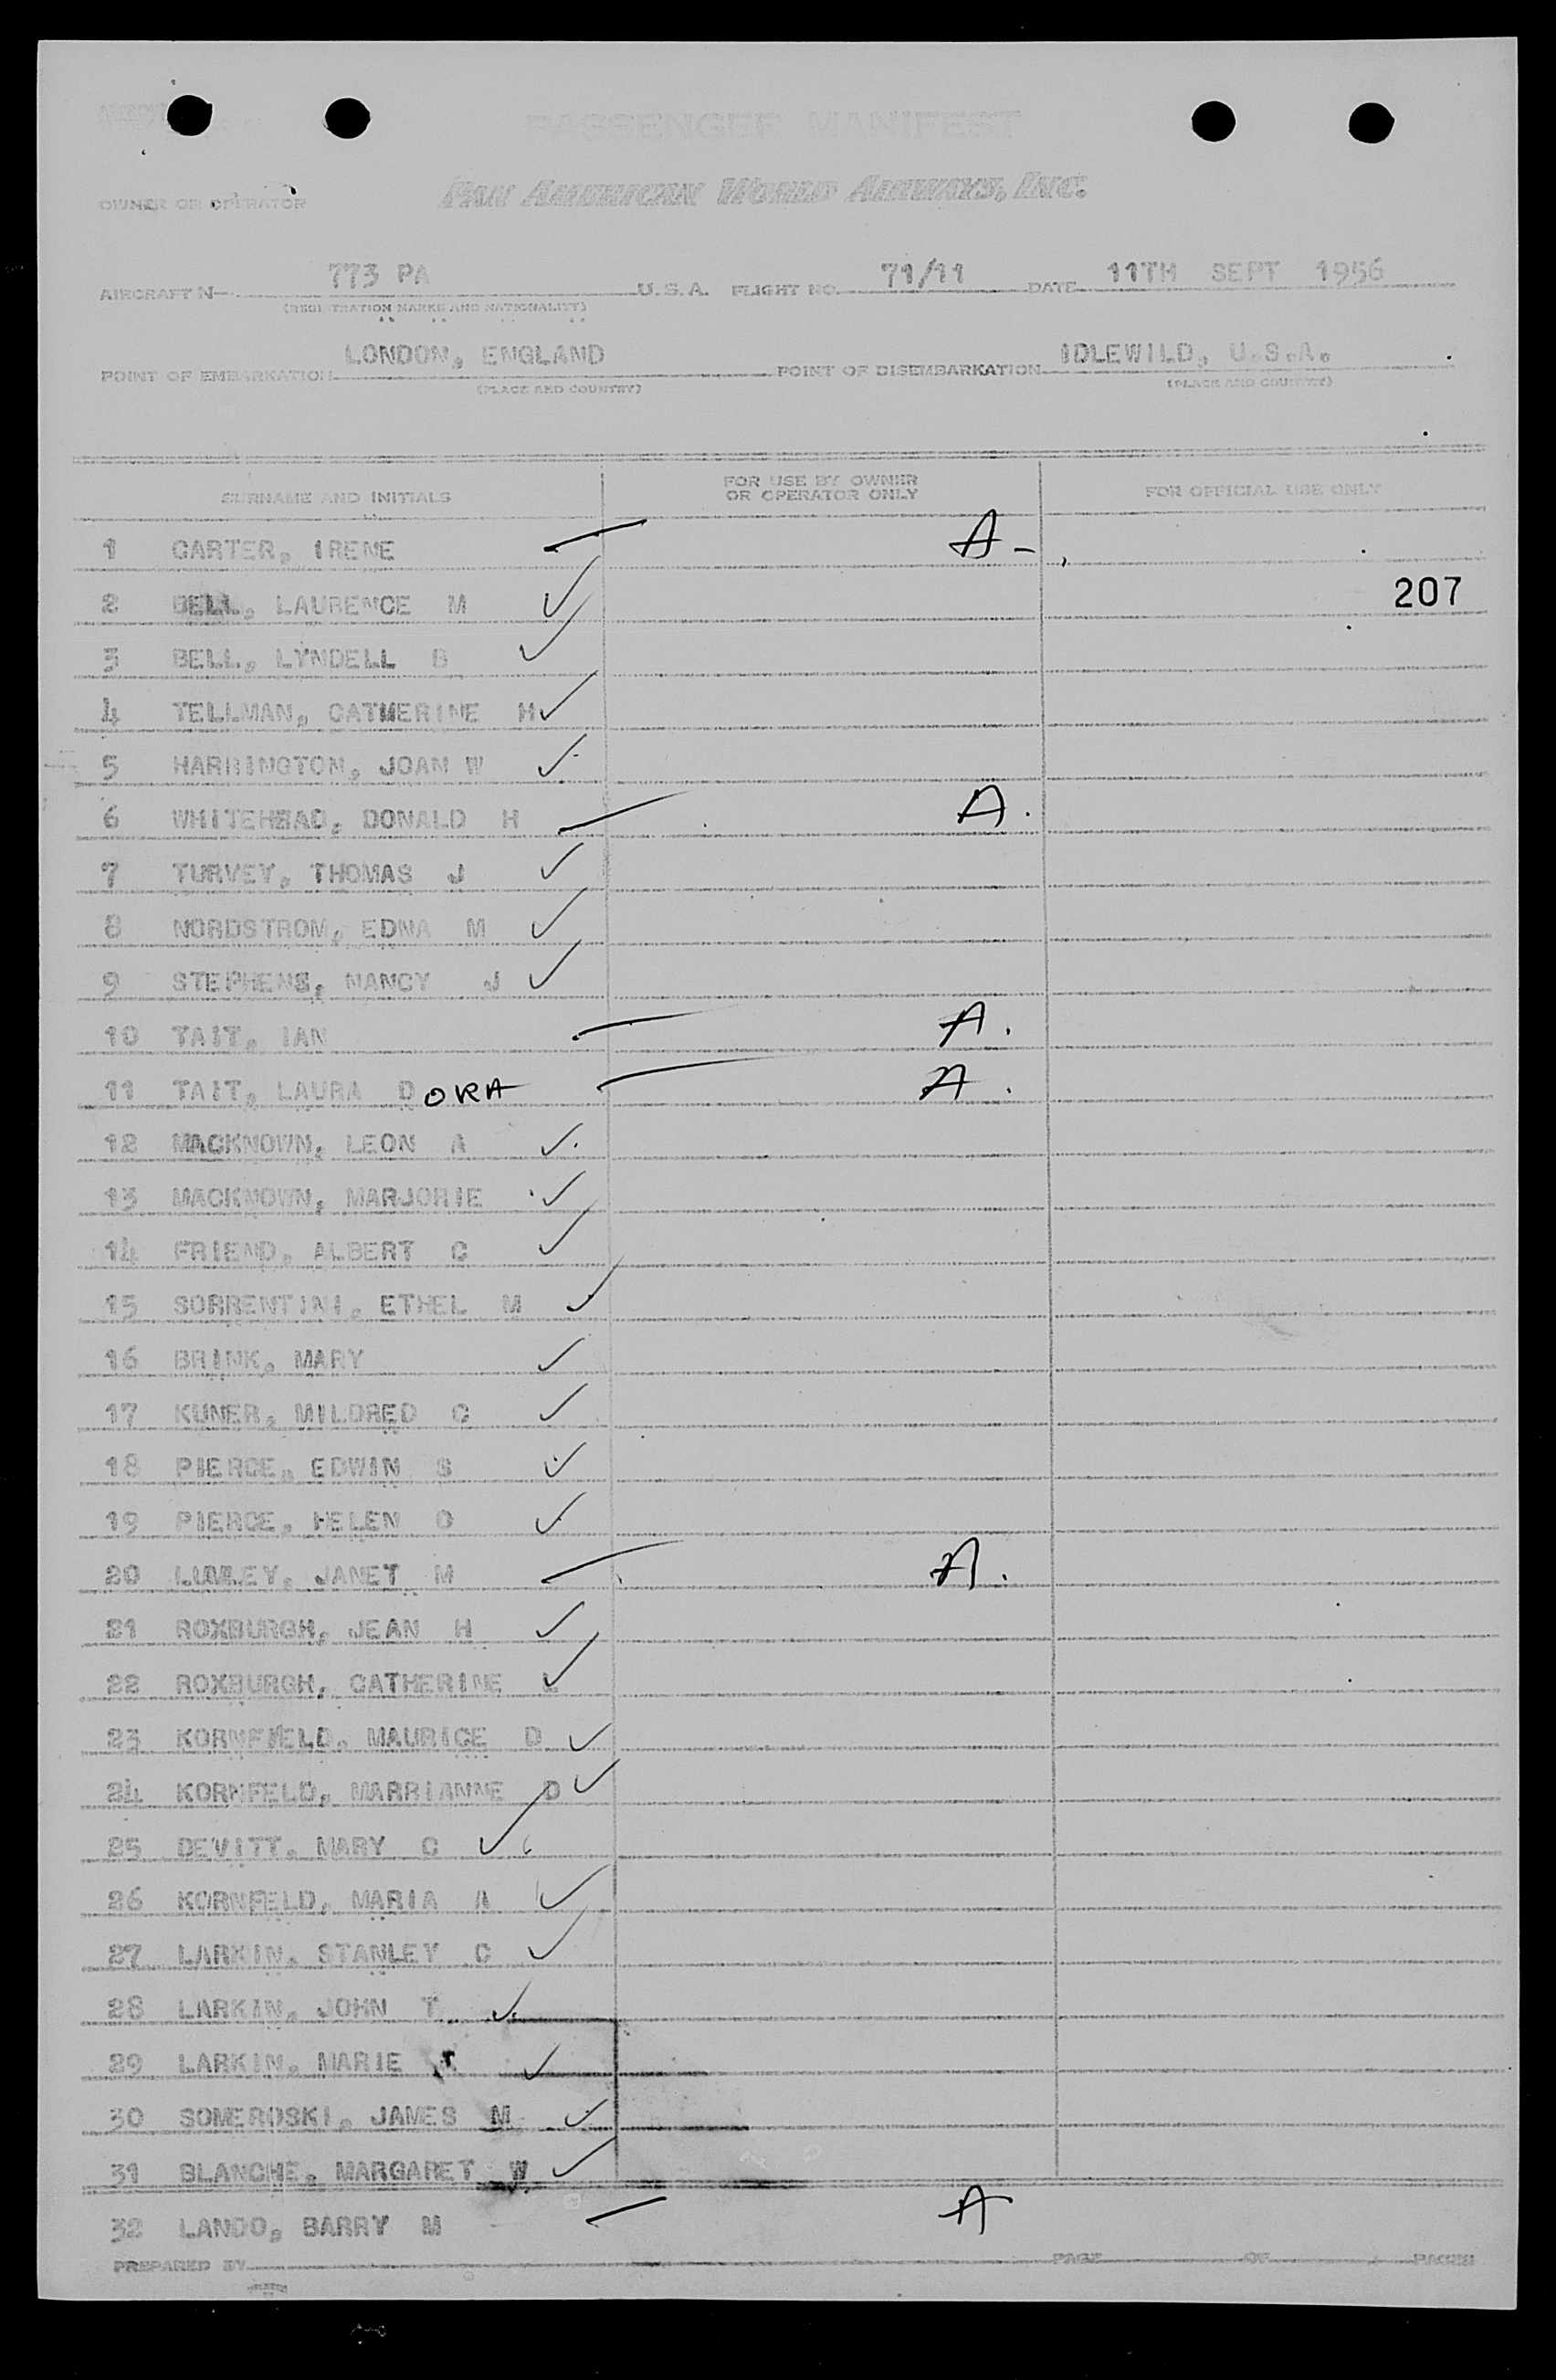 PASSENGER MANIFEST
OWNER OR OPERATOR PAN AMERICAN WORLD AIRWAYS, INC.
AIRCRAFT N- 773 PA U.S.A. FLIGHT NO. 71/11 DATE 11TH SEPT 1956
(REGISTRATION MARKS AND NATIONALITY)
POINT OF EMBARKATION LONDON, ENGLAND POINT OF DISEMBARKATION IDLEWILD, U.S.A.
(PLACE AND COUNTRY) (PLACE AND COUNTRY)
SURNAME AND INITIALS FOR USE BY OWNER OR OPERATOR ONLY FOR OFFICIAL USE ONLY
1 CARTER, IRENE A -
2 BELL, LAURENCE M ✓ 207
3 BELL, LYNDELL B ✓
4 TELLMAN, CATHERINE H ✓
5 HARRINGTON, JOAN W ✓
6 WHITEHEAD, DONALD H A.
7 TURVEY, THOMAS J ✓
8 NORDSTROM, EDNA M ✓
9 STEPHENS, NANCY J ✓
10 TAIT, IAN A.
11 TAIT, LAURA DORA A.
12 MACKNOWN, LEON A ✓
13 MACKNOWN, MARJORIE ✓
14 FRIEND, ALBERT C ✓
15 SORRENTINI, ETHEL M ✓
16 BRINK, MARY ✓
17 KUNER, MILDRED C ✓
18 PIERCE, EDWIN S ✓
19 PIERCE, HELEN O ✓
20 LUMLEY, JANET M A.
21 ROXBURGH, JEAN H ✓
22 ROXBURGH, CATHERINE L ✓
23 KORNFIELD, MAURICE D ✓
24 KORNFELD, MARRIANNE D ✓
25 DEVITT, MARY C ✓
26 KORNFELD, MARIA A ✓
27 LARKIN, STANLEY C ✓
28 LARKIN, JOHN T ✓
29 LARKIN, MARIE T ✓
30 SOMEROSKI, JAMES M ✓
31 BLANCHE, MARGARET W ✓
32 LANDO, BARRY M A
PREPARED BY PAGE OF PAGES